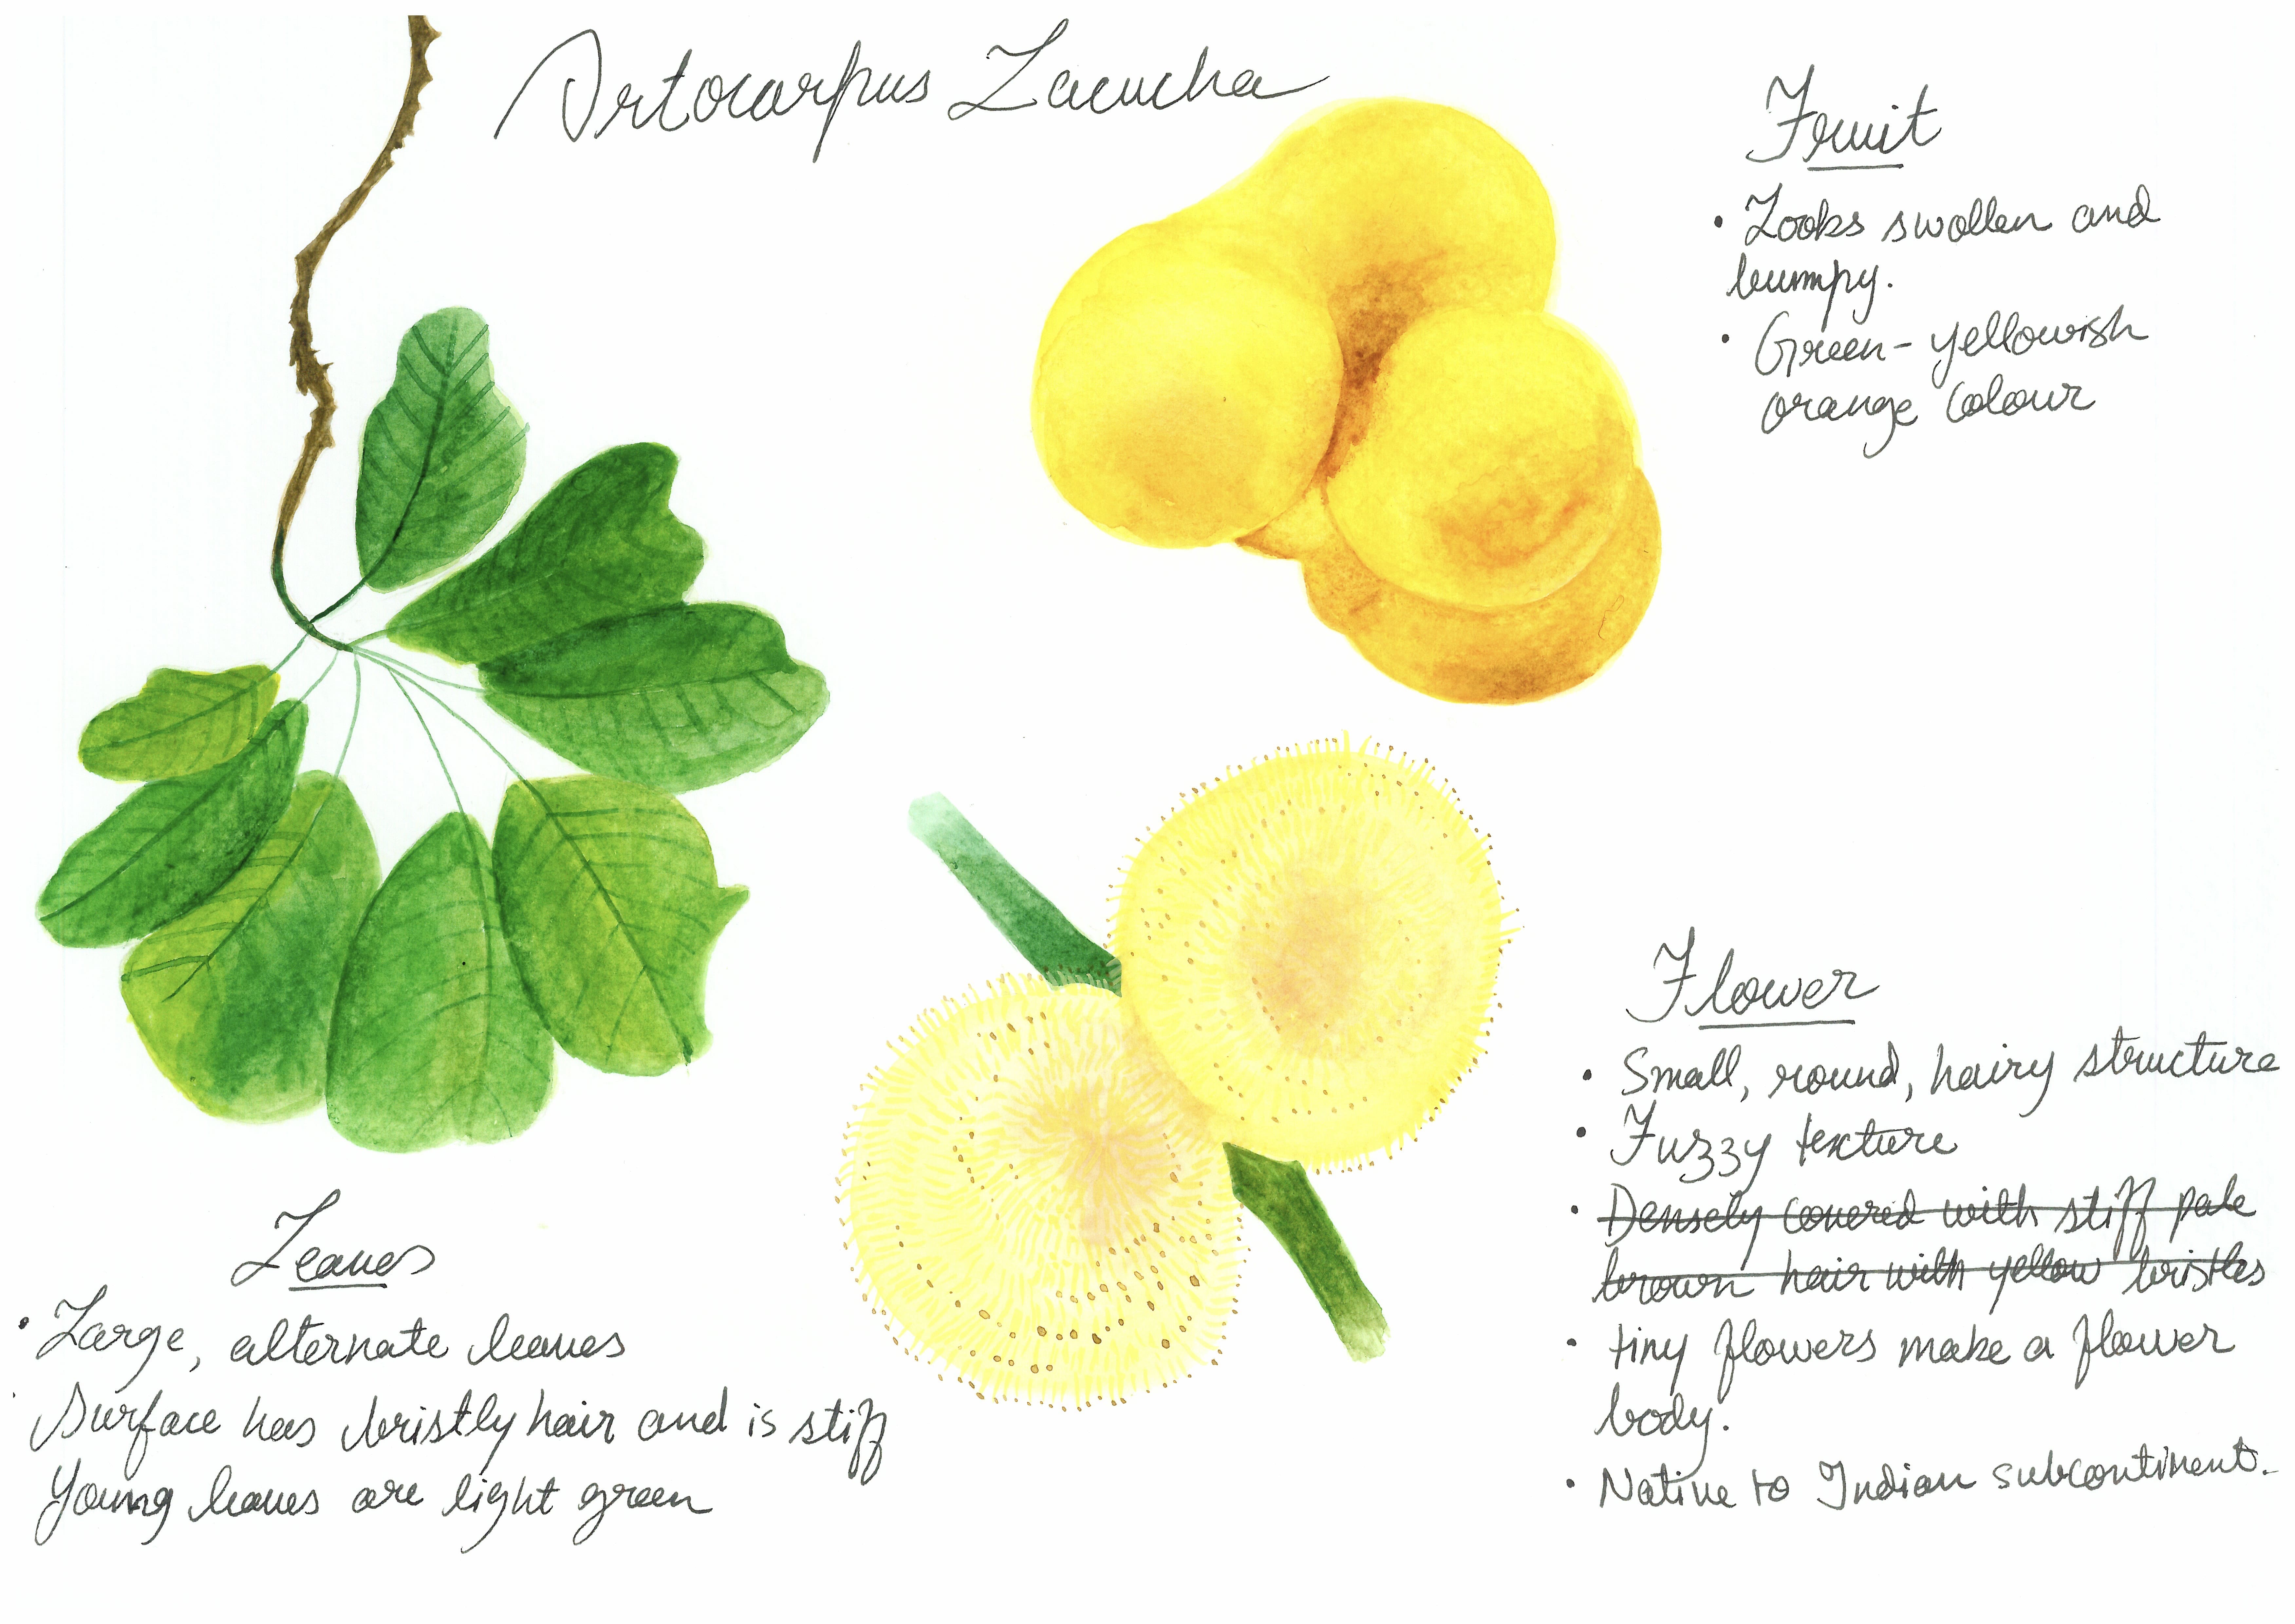 Artocarpus Lacucha
Fruit
• Looks swollen and
bumpy.
• Green-yellowish
orange colour
Flower
• Small, round, hairy structure
• Fuzzy texture
• Densely covered with stiff pale
brown hair with yellow bristles
• tiny flowers make a flower
body.
• Native to Indian subcontinent.
Leaves
• Large, alternate leaves
• Surface has bristly hair and is stiff
Young leaves are light green